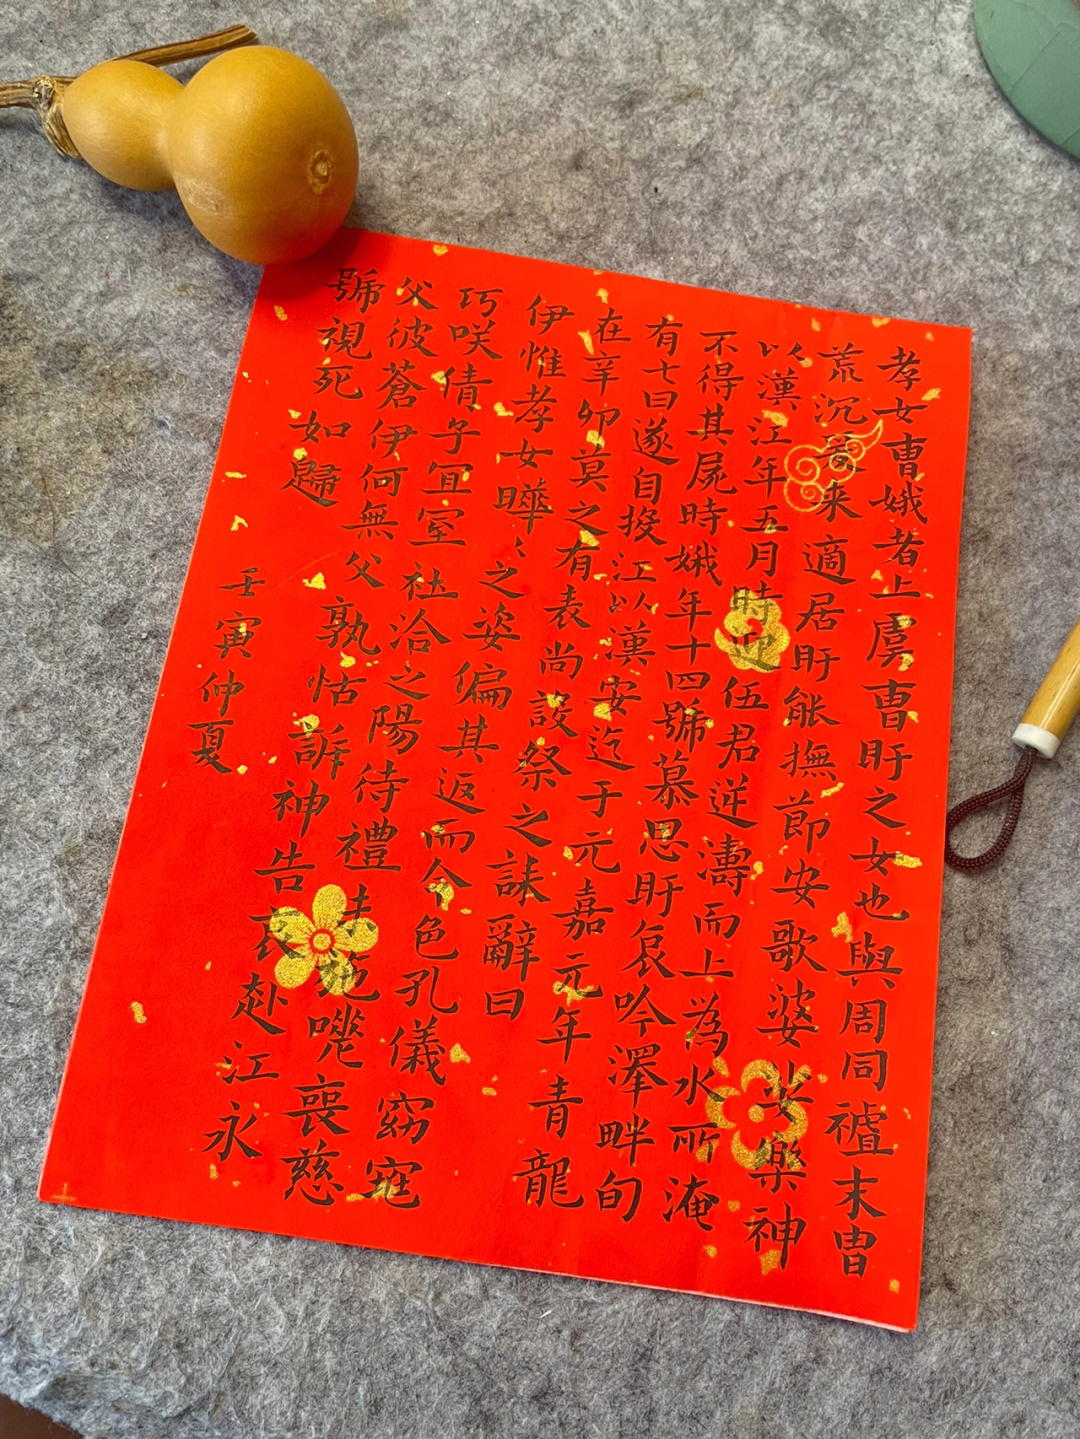 孝女曹娥者上虞曹盱之女也與周同末胄
荒沉爰来適居盱能撫節安歌婆娑樂神
以漢江年五月時迎伍君逆濤而上為水所淹
不得其屍時娥年十四號慕思盱哀吟澤畔旬
有七日遂自投江以漢安迄于元嘉元年青龍
在辛卯莫之有表尚設祭之誄辭曰
伊惟孝女曄〻之姿偏其返而令色孔儀窈窕
巧咲倩子宜室社洽之陽待禮未施嗟喪慈
父彼蒼伊何無父孰怙訴神告哀赴江永
號視死如歸
壬寅仲夏